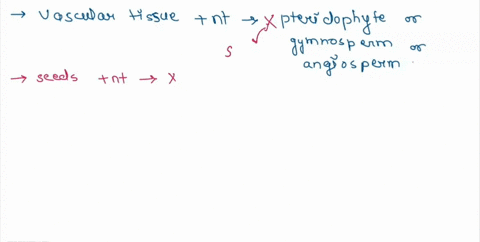 → vascular tissue +nt → X pteridophyte or
gymnosperm or
S
angiosperm.
→ seeds +nt → X